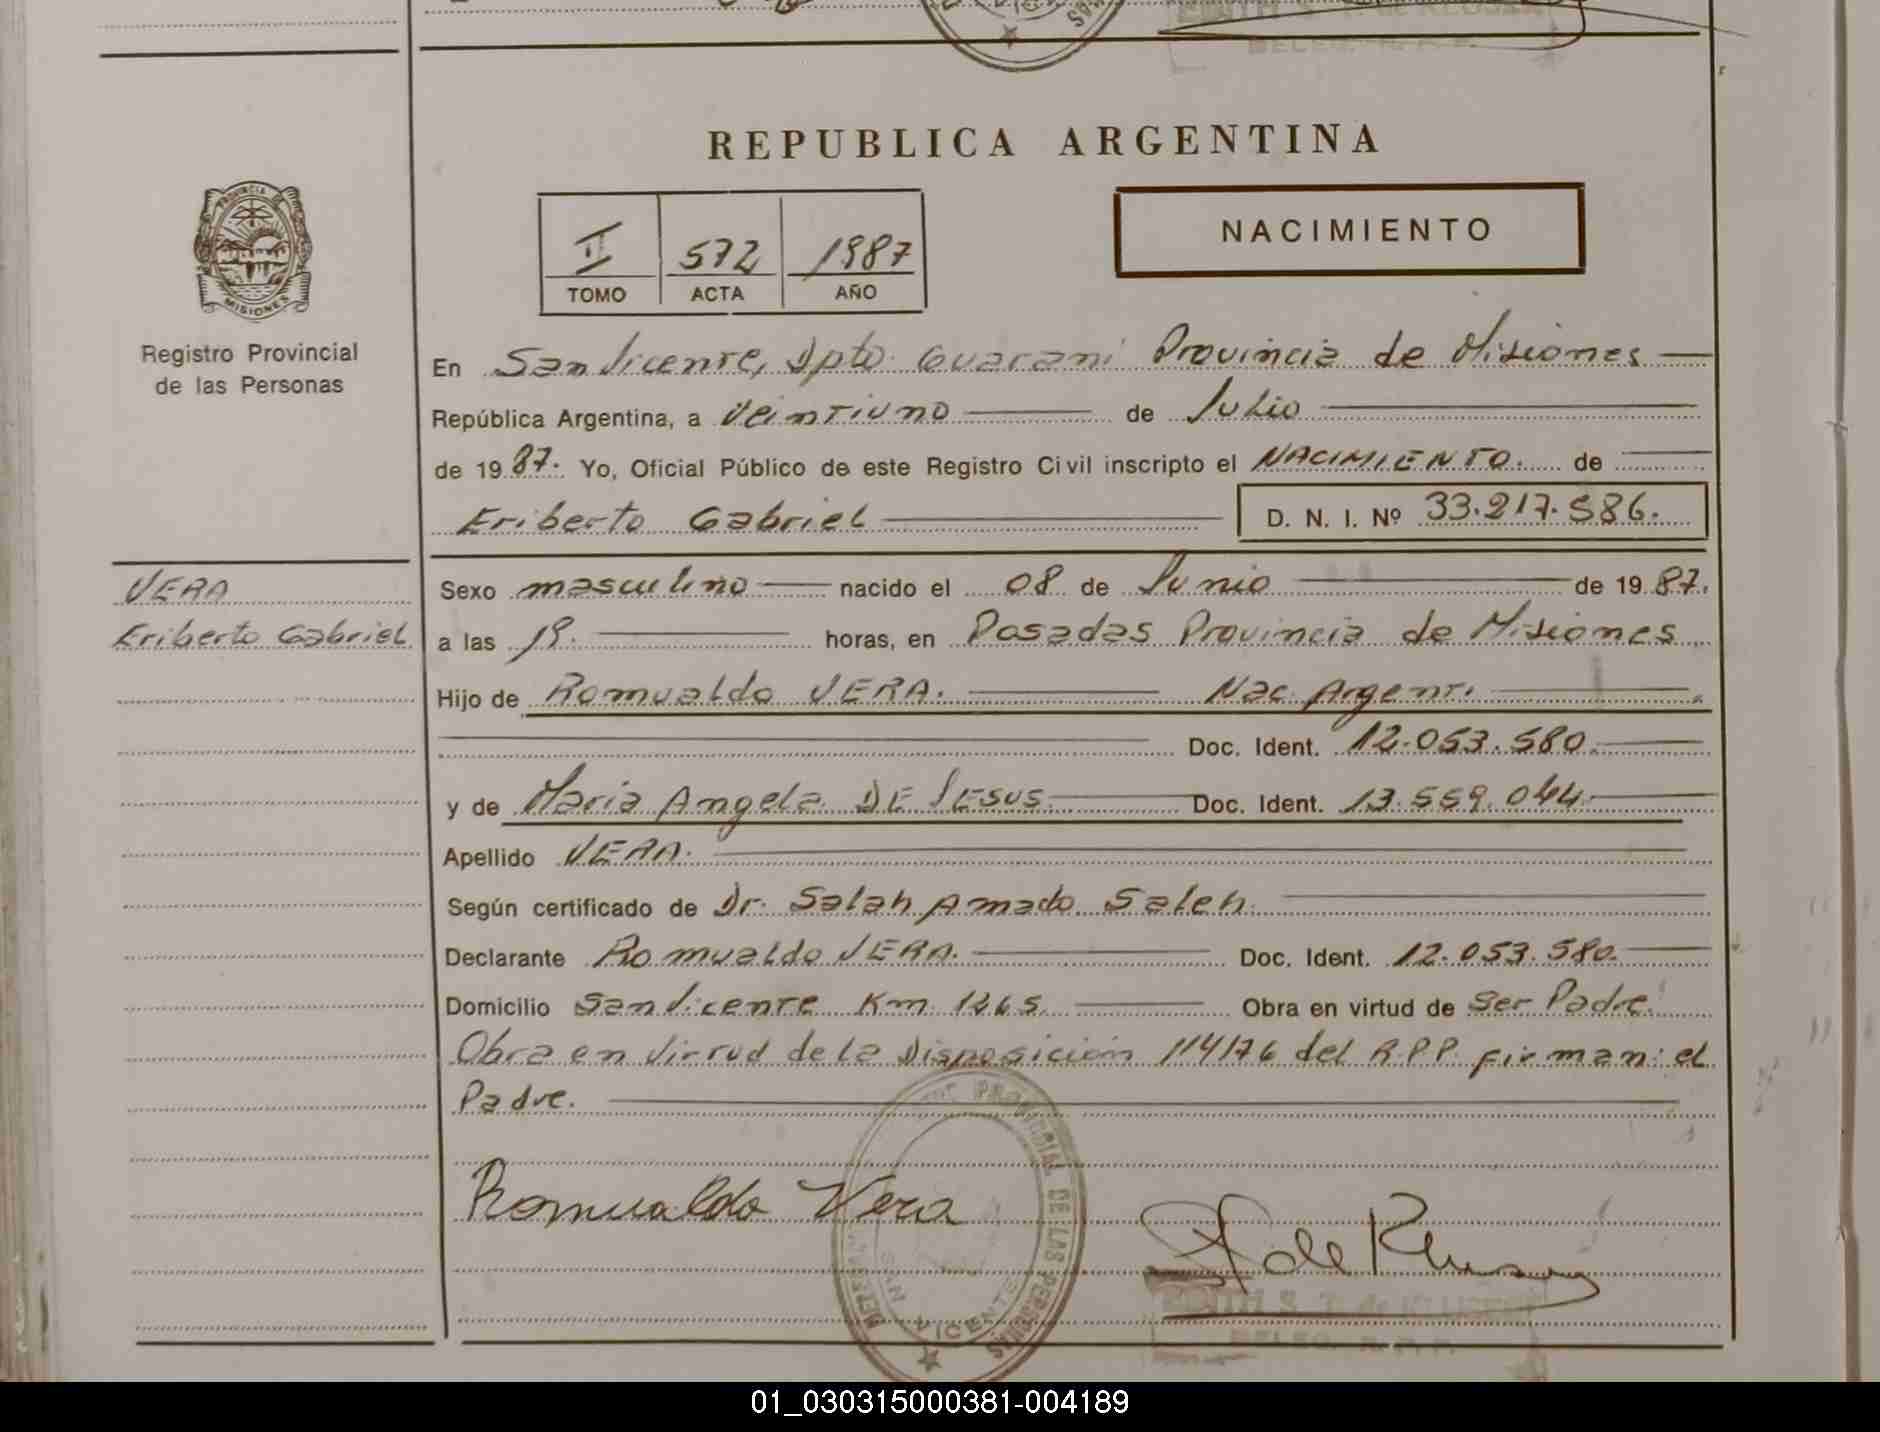 REPUBLICA ARGENTINA
PROVINCIA DE
MISIONES
Registro Provincial
de las Personas
II 572 1987
TOMO ACTA AÑO
NACIMIENTO
En San Vicente, Dpto. Guarani Provincia de Misiones
República Argentina, a Veintiuno de Julio
de 1987. Yo, Oficial Público de este Registro Civil inscripto el NACIMIENTO. de
Eriberto Gabriel D. N. I. Nº 33.217.586.
VERA
Eriberto Gabriel
Sexo masculino nacido el 08 de Junio de 1987.
a las 19. horas, en Posadas Provincia de Misiones
Hijo de Romualdo VERA. Nac. Argent.
Doc. Ident. 12.053.580.
y de Maria Angela DE JESUS. Doc. Ident. 13.559.044.
Apellido VERA.
Según certificado de Dr. Salah Amado Saleh.
Declarante Romualdo VERA. Doc. Ident. 12.053.580.
Domicilio San Vicente Km 1265. Obra en virtud de Ser Padre.
Obra en Virtud de la Disposición 114/76 del R.P.P. firman: el
Padre.
Romualdo Vera
PROVINCIAL DE LAS PERSONAS
SAN VICENTE
EDITH S. T. de
DELEG. R. P. P.
01_030315000381-004189